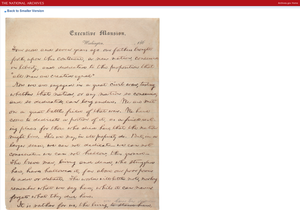 THE NATIONAL ARCHIVES
Back to Smaller Version
Executive Mansion,
Washington, 186
How four score and seven years ago our fathers brought
forth, upon this continent, a new nation, conceived
in liberty, and dedicated to the proposition that
"all men are created equal"
Now we are engaged in a great civil war, testing
whether that nation, or any nation so conceived,
and so dedicated, can long endure. We are met
on a great battle field of that war. We have
come to dedicate a portion of it, as a final rest-
ing place for those who died here, that the nation
might live. This we may, in all propriety do. But, in a
larger sense, we can not dedicate we can not
consecrate we can not hallow, this ground
The brave men, living and dead, who struggled
here, have hallowed it, far above our poor power
to add or detract. The world will little note, nor long
remember what we say here; while it can never
forget what they did here.
It is rather for us, the living,